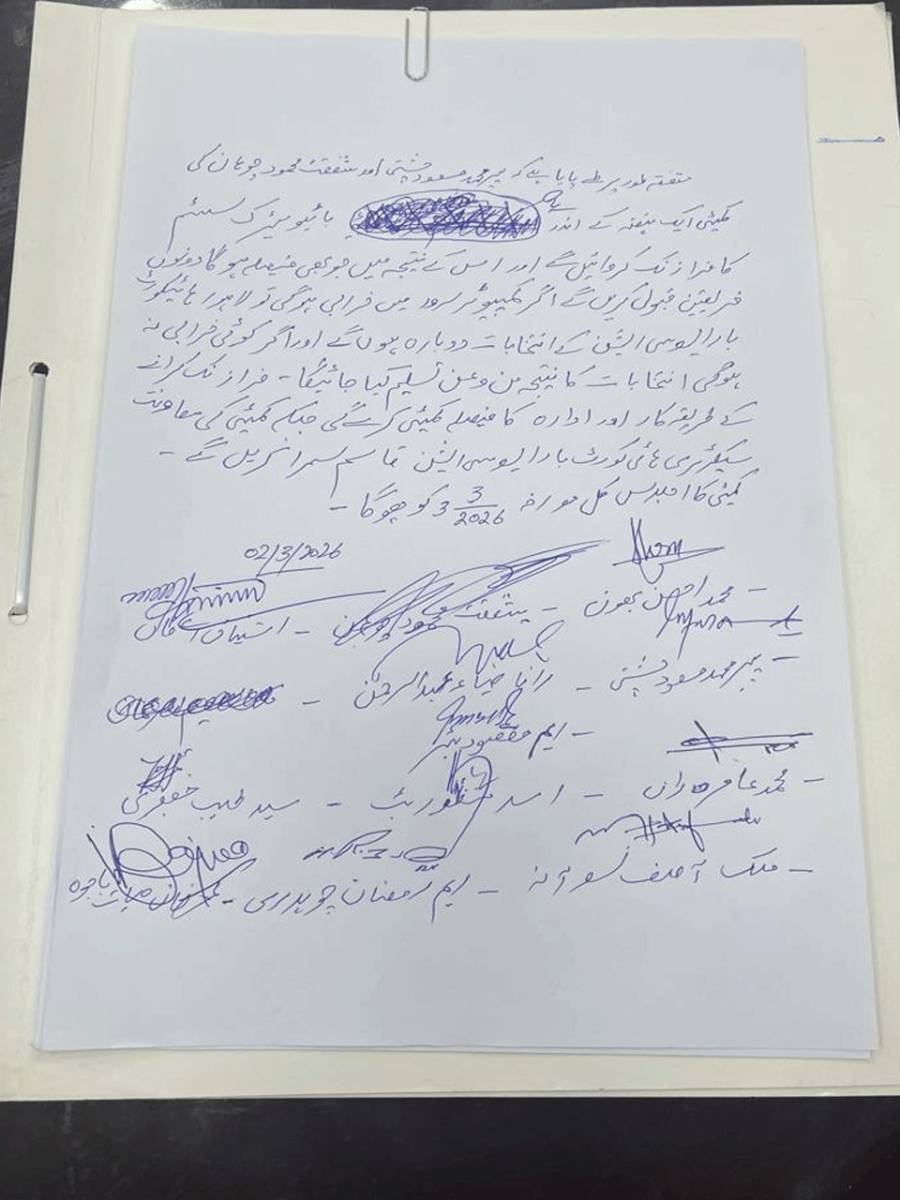 متفقہ طور پر طے پایا ہے کہ پیر محمد مسعود چشتی اور شفقت محمود چوہان کی
کمیٹی ایک ہفتہ کے اندر بائیومیٹرک سسٹم
کا فرانزک کروائیں گے اور اس کے نتیجہ میں جو بھی فیصلہ ہو گا دونوں
فریقین قبول کریں گے اگر کمپیوٹر سرور میں خرابی ہو گی تو لاہور ہائیکورٹ
بار ایسوسی ایشن کے انتخابات دوبارہ ہوں گے اور اگر کوئی خرابی نہ
ہوگی انتخابات کا نتیجہ من و عن تسلیم کیا جائیگا - فرانزک کرانے
کے طریقہ کار اور ادارہ کا فیصلہ کمیٹی کرے گی جبکہ کمیٹی کی معاونت
سیکرٹری ہائی کورٹ بار ایسوسی ایشن قاسم سمرا کریں گے -
کمیٹی کا اجلاس کل مورخہ 3/3/2026 کو ہوگا -
02/3/2026
- محمد احسن بھون - شفقت محمود چوہان - اشتیاق
- پیر محمد مسعود چشتی - رانا ضیاء عبدالرحمٰن -
- ایم مقصود بٹر
- محمد عامر - اسد منظور بٹ - سید طیب جعفری
- ملک آصف نسوآنہ - ایم رمضان چوہدری - باجوہ